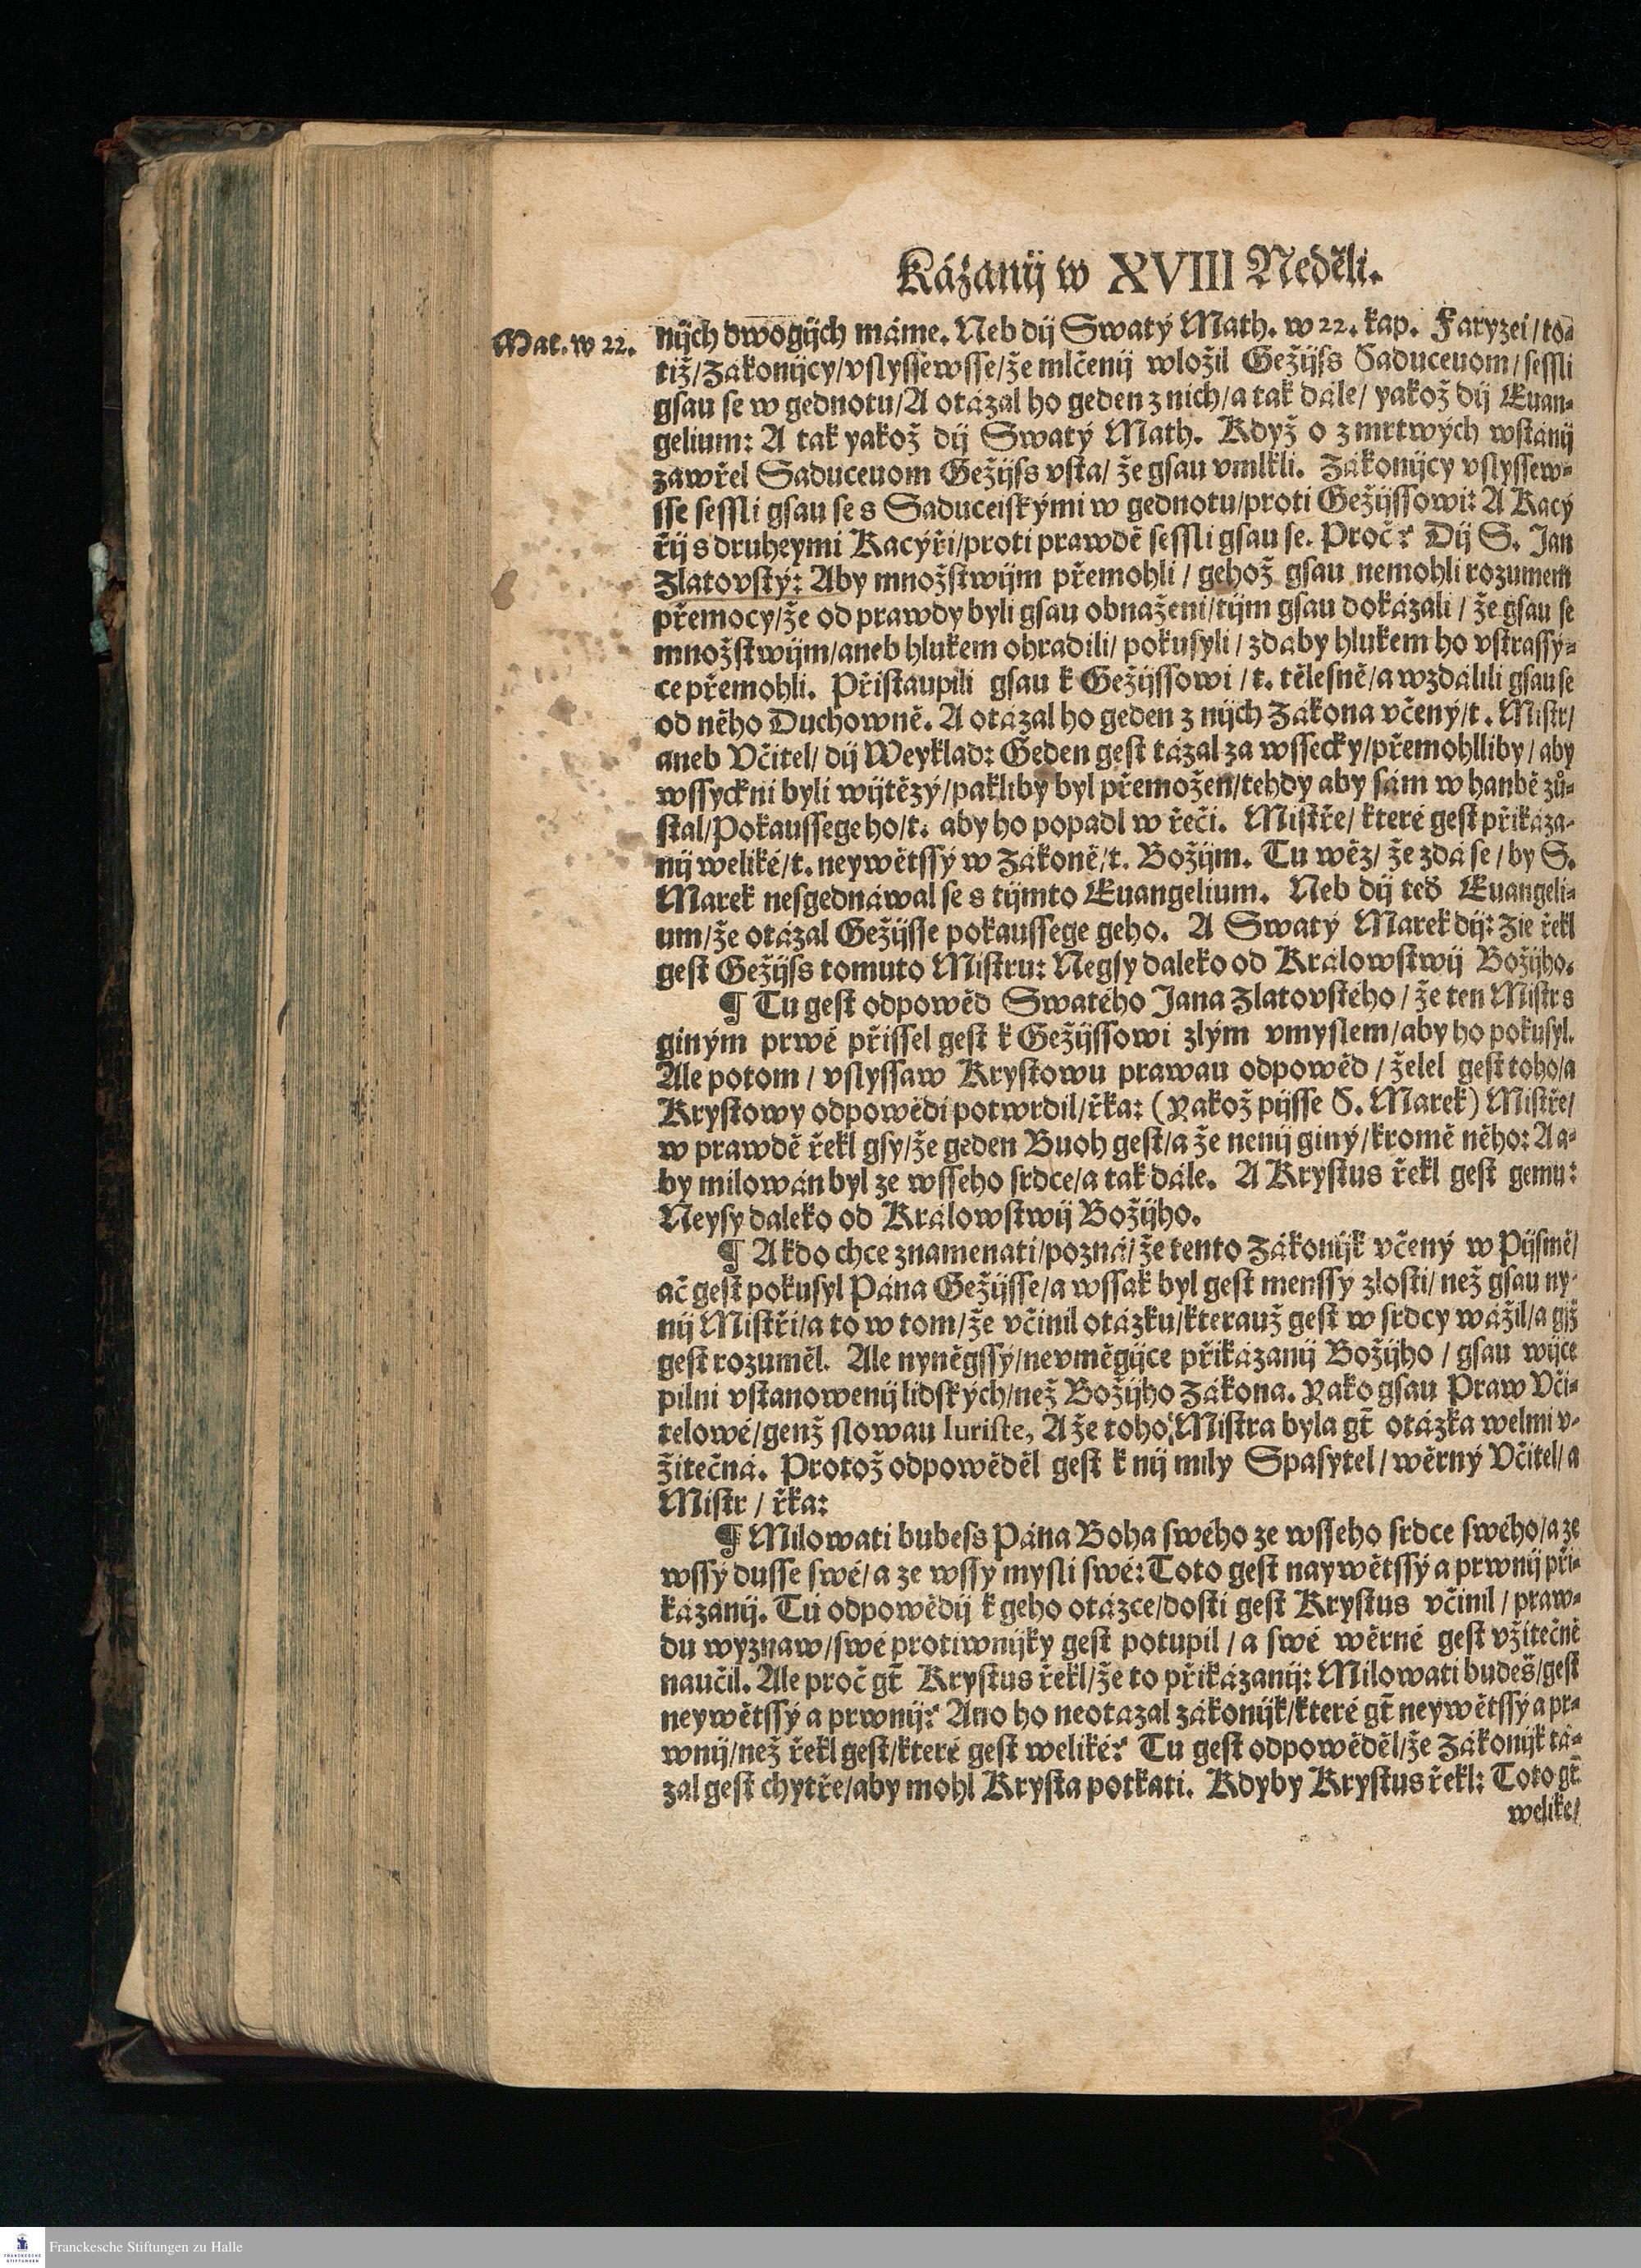 Kázanij w XVIII Neděli.
Mat. w 22.
nijch dwogijch máme. Neb dij Swatý Math. w 22. kap. Faryzei/to-
tiž/Zákonijcy/vslyssewsse/že mlčenij wložil Gežijss Saduceuom/sessli
gsau se w gednotu/A otázal ho geden z nich/a tak dále/ yakož dij Euan-
gelium: A tak yakož dij Swatý Math. Když o z mrtwých wstánij
zawřel Saduceuom Gežijss vsta/ že gsau vmlkli. Zákonijcy vslyssew-
sse sessli gsau se s Saduceiskými w gednotu/proti Gežijssowi: A Kacý
řij s druheymi Kacýři/proti prawdě sessli gsau se. Proč? Dij S. Jan
Zlatovstý: Aby množstwijm přemohli / gehož gsau nemohli rozumem
přemocy/že od prawdy byli gsau obnaženi/tijm gsau dokázali / že gsau se
množstwijm/aneb hlukem ohradili/ pokusyli / zdaby hlukem ho vstrassý-
ce přemohli. Přistaupili gsau k Gežijssowi / t. tělesně/a wzdálili gsau se
od něho Duchowně. A otázal ho geden z nijch Zákona včený/t. Mistr/
aneb Včitel/ dij Weyklad: Geden gest tázal za wssecky/přemohlliby/ aby
wssyckni byli wijtězý/pakliby byl přemožen/tehdy aby sám w hanbě zů-
stal/Pokaussege ho/t. aby ho popadl w řeči. Mistře/ které gest přikáza-
nij weliké/t. neywětssý w Zákoně/t. Božijm. Tu wěz/ že zdá se / by S.
Marek nesgednáwal se s tijmto Euangelium. Neb dij teď Euangeli-
um/že otázal Gežijsse pokaussege geho. A Swatý Marek dij: Zie řekl
gest Gežijss tomuto Mistru: Negsy daleko od Králowstwij Božijho.
¶ Tu gest odpowěd Swatého Jana Zlatovstého / že ten Mistr s
giným prwé přissel gest k Gežijssowi zlým vmyslem/aby ho pokusyl.
Ale potom / vslyssaw Krystowu prawau odpowěd / želel gest toho/a
Krystowy odpowědi potwrdil/řka: (Yakož pijsse S. Marek) Mistře/
w prawdě řekl gsy/že geden Buoh gest/a že nenij giný/kromě něho: A a-
by milowán byl ze wsseho srdce/a tak dále. A Krystus řekl gest gemu:
Neysy daleko od Králowstwij Božijho.
¶ A kdo chce znamenati/pozná/ že tento Zákonijk včený w Pijsmě/
ač gest pokusyl Pána Gežijsse/a wssak byl gest menssý zlosti/ než gsau ny-
nij Mistři/a to w tom/že včinil otázku/kterauž gest w srdcy wážil/a giž
gest rozuměl. Ale nyněgssý/nevměgijce přikázanij Božijho / gsau wijce
pilni vstanowenij lidských/než Božijho Zákona. Yako gsau Praw Vči-
telowé/genž slowau Iuriste, A že toho Mistra byla gt̃ otázka welmi v-
žitečná. Protož odpowěděl gest k nij milý Spasytel / wěrný Včitel/ a
Mistr / řka:
¶ Milowati bubess Pána Boha swého ze wsseho srdce swého/a ze
wssý dusse swé/ a ze wssý mysli swé: Toto gest naywětssý a prwnij při-
kázanij. Tú odpowědij k geho otázce/dosti gest Krystus včinil / praw-
du wyznaw/swé protiwnijky gest potupil / a swé wěrné gest vžitečně
naučil. Ale proč gt̃ Krystus řekl/že to přikázanij: Milowati budeš/gest
neywětssý a prwnij? Ano ho neotázal zákonijk/které gt̃ neywětssý a pr-
wnij/než řekl gest/které gest weliké? Tu gest odpowěděl/že Zákonijk tá-
zal gest chytře/aby mohl Krysta potkati. Kdyby Krystus řekl: Toto gt̃
weliké/
Franckesche Stiftungen zu Halle